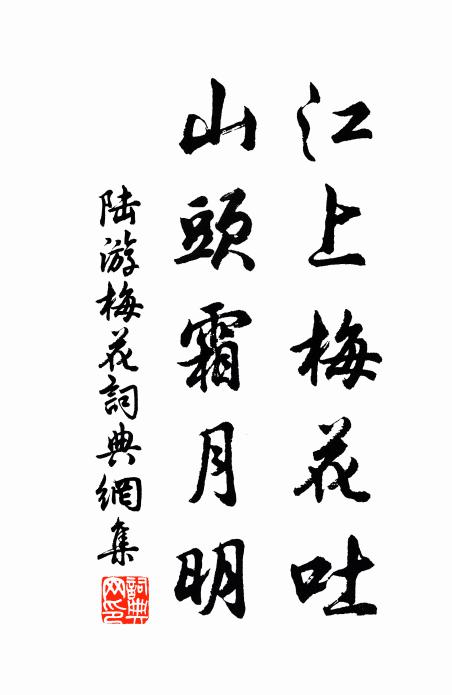 江上梅花吐
山頭霜月明
陸游梅花詞典網集
詞典網印